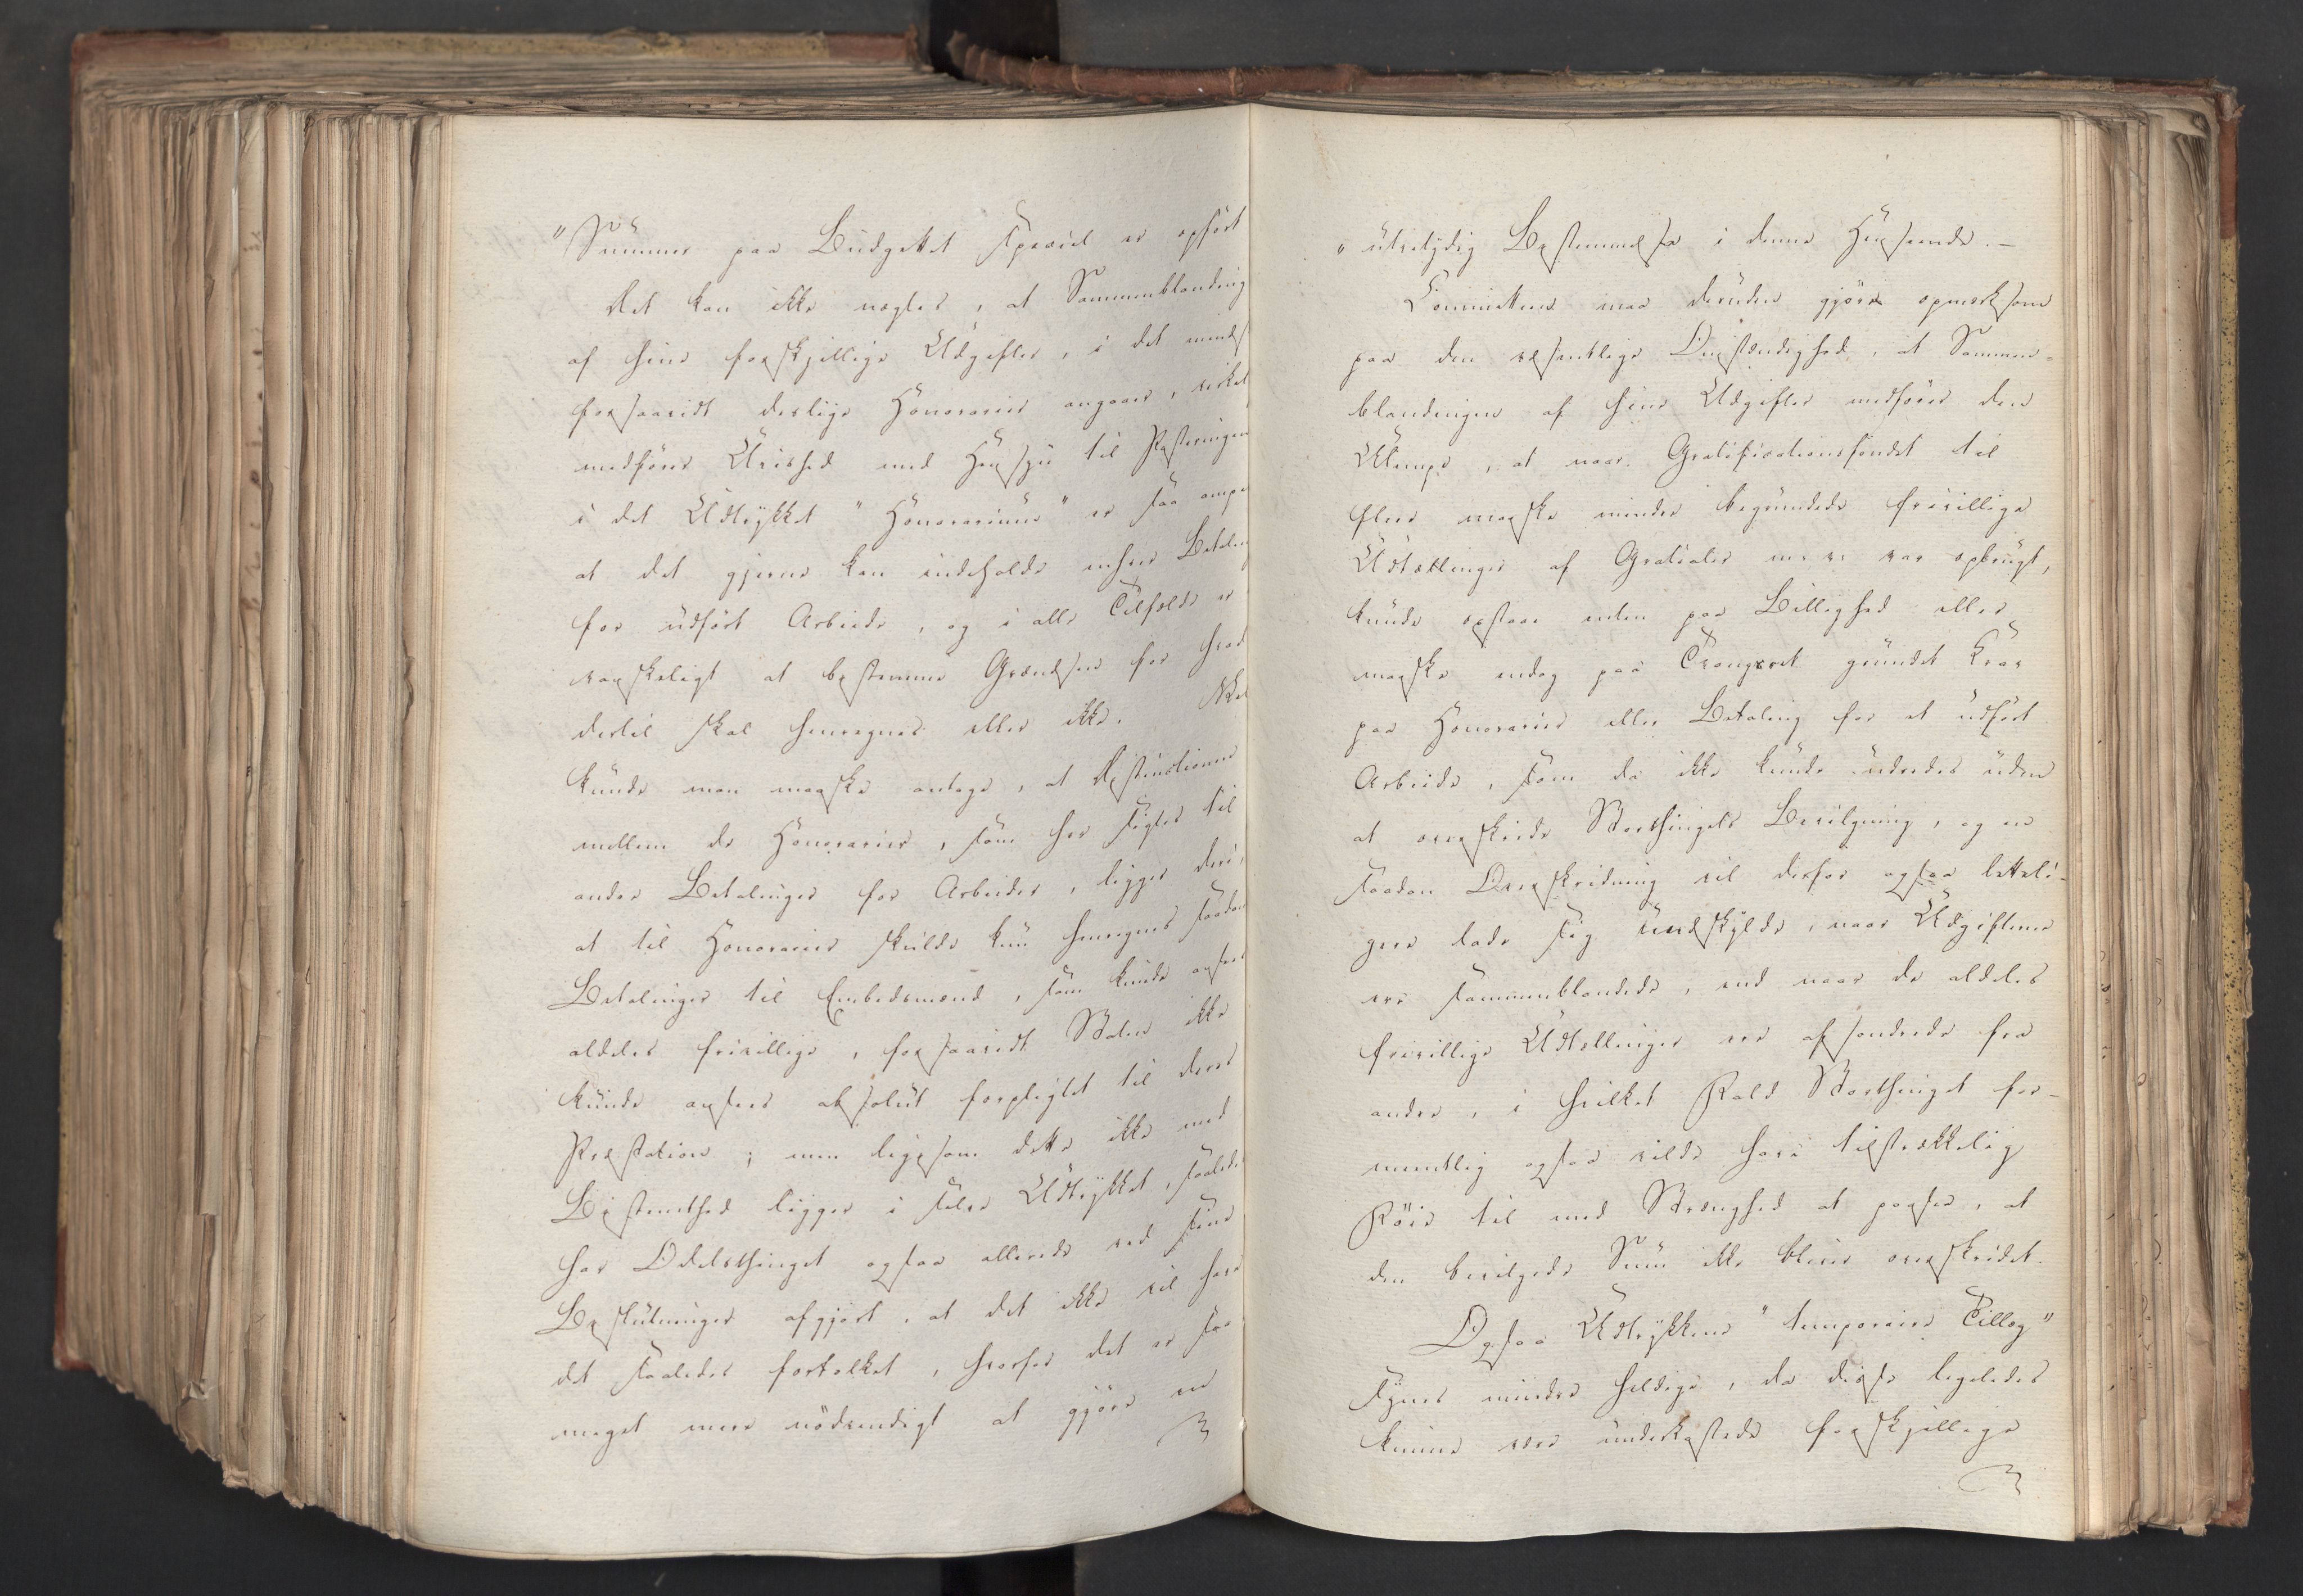 "Summer paa Budgettet speciel er opført
Det kan ikke nægtes, at Sammenblanding
af hine forskjellige Udgifter, i det mindst
forsaavidt deslige Honorarier angaaer, virkel
medfører Uvished med Hensyn til Posteringen
i det Udtrykket "Honorarium" er saa
at det gjerne kan indeholde enhver Betaling
for udført Arbeide, og i alle Tilfælde er
vanskeligt at bestemme Grændsen for hvad
dertil skal henregnes eller ikke. Vel
kunde man maaske antage, at Distinctionen
mellem de Honorarier, som her sigtes til
andre Betalinger for Arbeider, ligger deri,
at til Honorarier skulde kun henregnes saadan
Betalinger til Embedsmænd, som kunde ansees
aldeles frivillige, forsaavidt Staten ikke
kunde ansees absolut forpligtet til deres
Præstation; men ligesom dette ikke med
Bestemthed ligger i selve Udtrykket, saaledes
har Odelsthinget ogsaa allerede ved sine
Beslutninger afgjort, at det ikke vil have
det saaledes fortolket, hvorfor det er saa
meget mere nødvendigt at gjøre en
"utvetydig Bestemmelse i denne Henseende.—
Committeen maa desuden gjøre opmærksom
paa den væsentlige Omstændighed, at Sammen-
blandingen af hine Udgifter medfører den
Ulempe, at naar Gratificationsfondet til
flere maaske mindre begrundede frivillige
Udtællinger af Gratialer m: v: var opbrugt,
kunde opstaae enten paa Billighed eller
maaske endog paa Trangsret grundet Krav
paa Honorarier eller Betaling for et udført
Arbeide, som da ikke kunde udredes uden
at overskride Storthingets Bevilgning, og en
saadan Overskridning vil derfor ogsaa letteli-
gere lade sig undskylde, naar Udgifterne
ere sammenblandede, end naar de aldeles
frivillige Udtællinger ere afsondrede fra
andre, i hvilket Fald Storthinget for-
mentlig ogsaa vilde have tilstrækkelig
Føie til med Strenghed at paasee, at
den bevilgede Sum ikke bliver overskredet.
Ogsaa Udtrykkene "temporaire Tillæg"
synes mindre heldige, da disse ligeledes
kunne være underkastede forskjellige